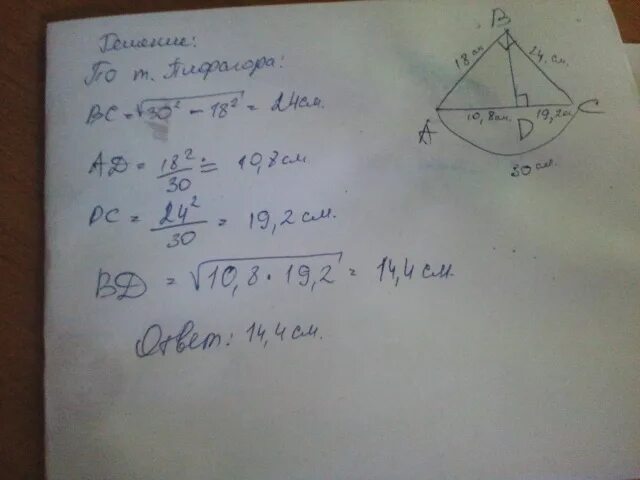 Решение:
По т. Пифагора:
BC = √30² − 18² = 24см.
AD = 18²/30 = 10,8см.
DC = 24²/30 = 19,2 см.
BD = √10,8 · 19,2 = 14,4 см.
Ответ: 14,4 см.
B
18 см
24 см.
A
10,8 см.
D
19,2 см
C
30 см.